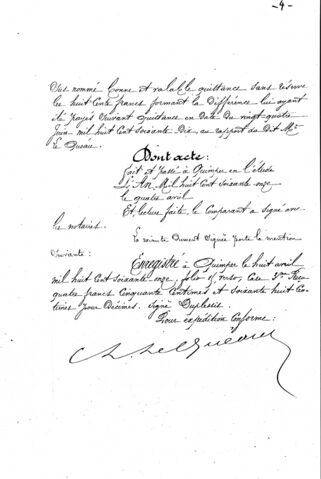 -4-
sus nommé bonne et valable quittance sans réserve
les huit cents francs formant la différence lui ayant
été payés suivant quittance en date du vingt-quatre
juin mil huit cent soixante dix, au rapport du dit Me
Le Queau.
Dont acte:
Fait et passé à Quimper en l'étude
L'An Mil huit cent soixante onze
le quatre avril
Et, lecture faite, le Comparant a signé avec
les notaires.
La minute dument signée porte la mention
suivante:
Enregistré à Quimper le huit avril
mil huit cent soixante onze, folio verso, Case Reçu
quatre francs cinquante centimes et soixante huit cen-
times pour décimes. Signé Duplessis.
Pour expédition conforme: